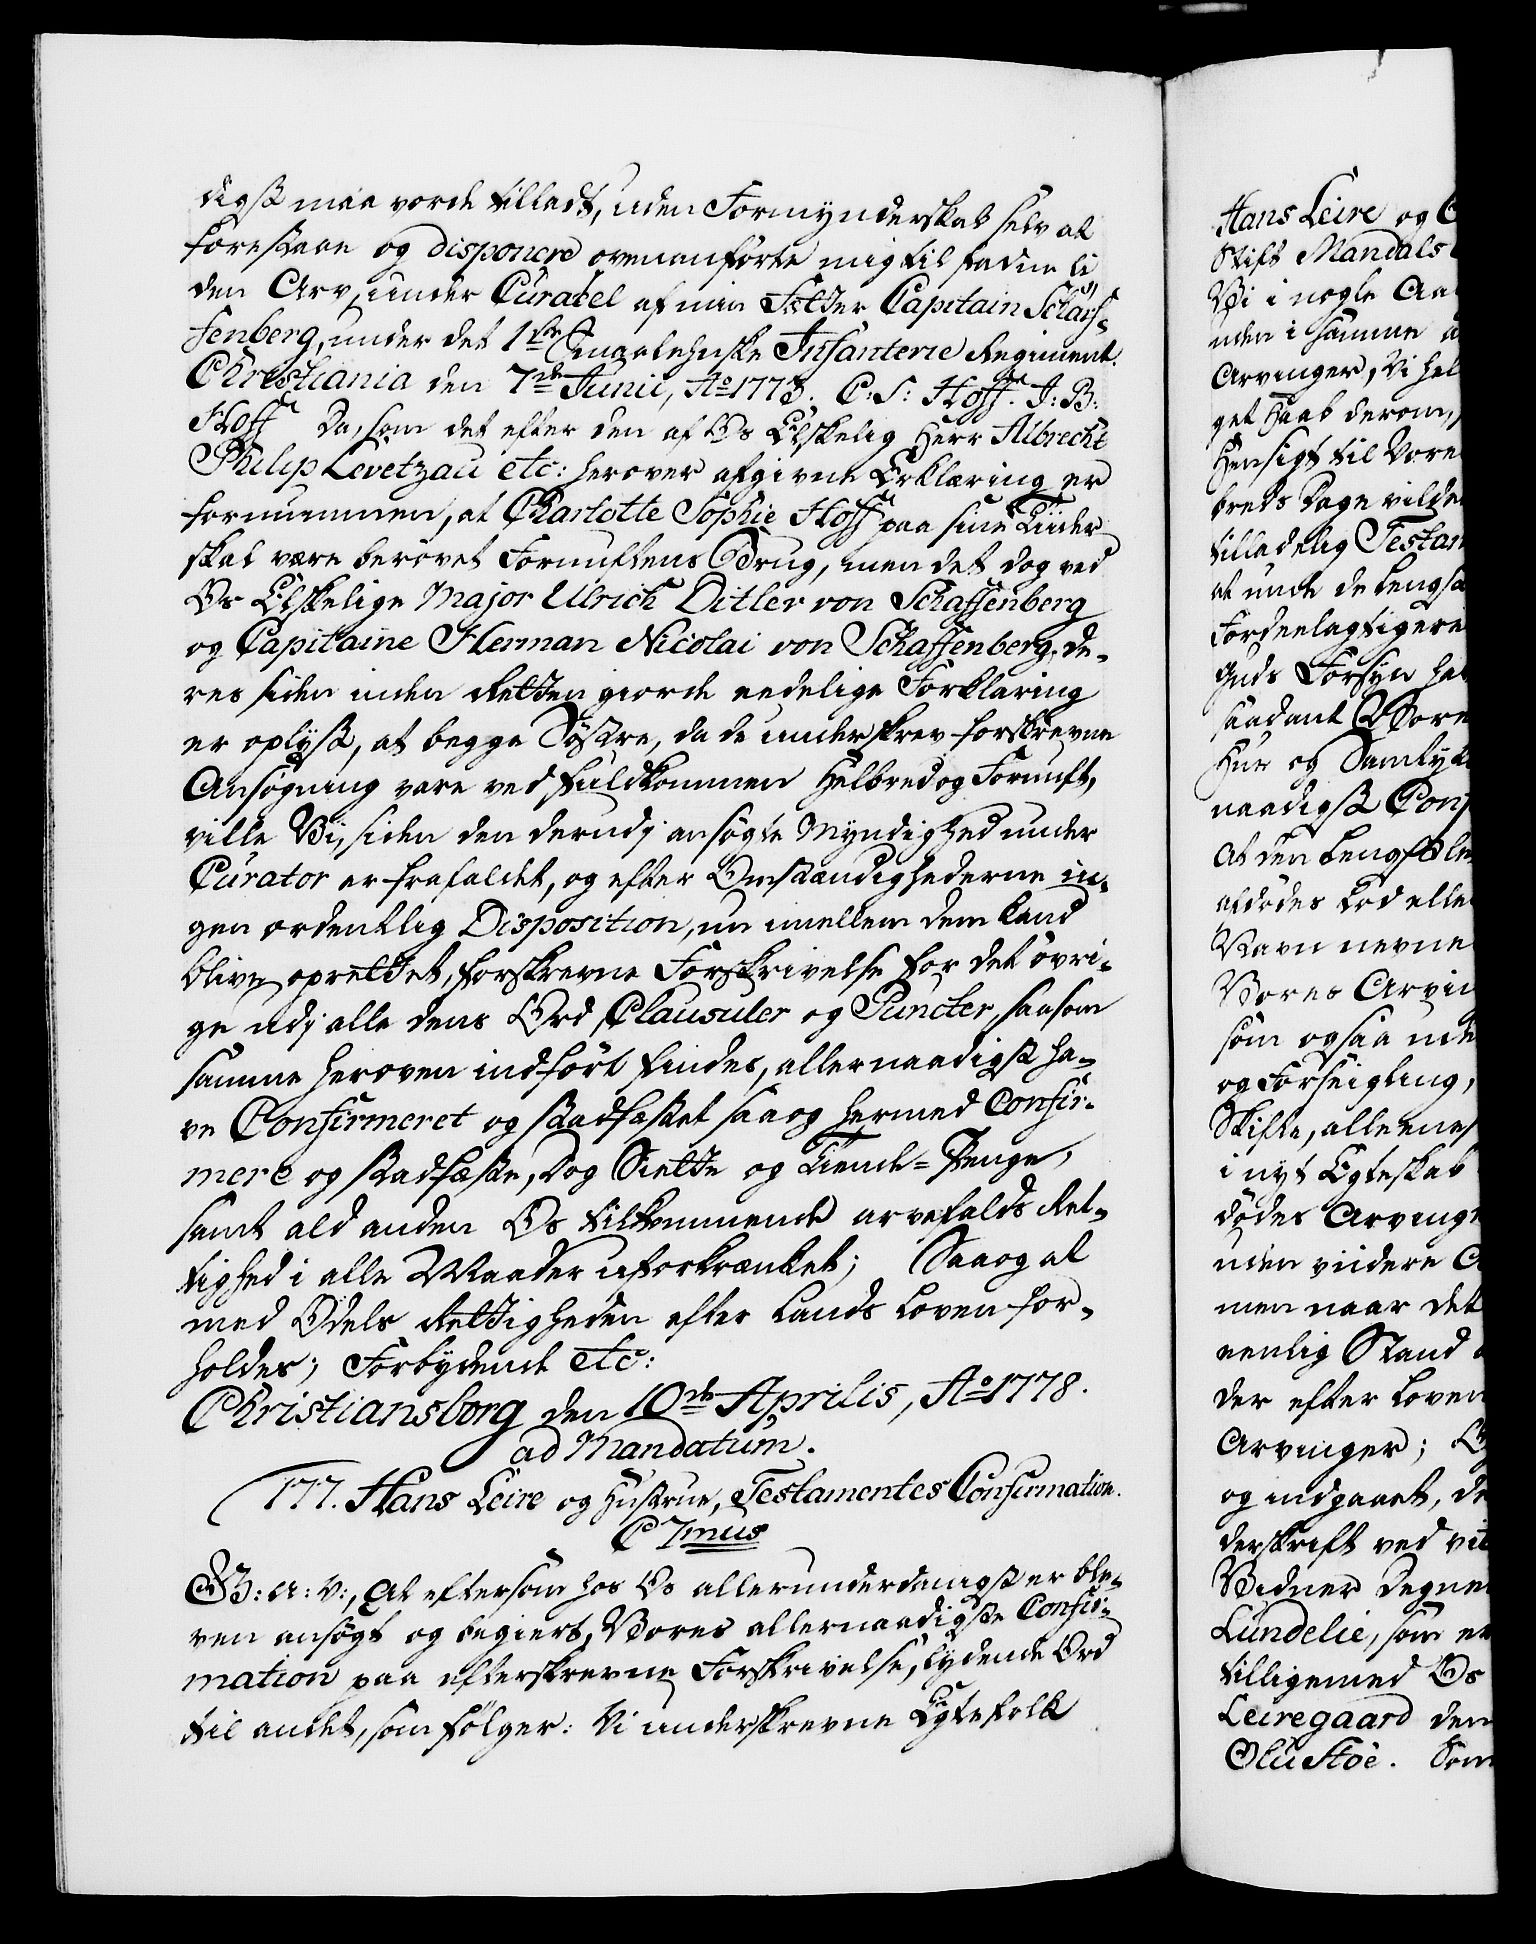 digst maa vorde tilladt, uden Formynderskab selv at
forestaae og disponere ovenanförte mig tilfadne li,
den Arv, under Curatel af min Fetter Capitain Schaf-
fenberg, under det 1ste Smaalehnske Infanterie Regiment.
Christiania den 7de Junii, Ao 1773. C: S: Hoff. J: B:
Hoff Da, som det efter den af Os Elskelig Herr Albrecht
Philip Levetzau etc: herover afgivne Erklæring er
fornummen, at Charlotte Sophie Hoff paa sine Tiider
skal være berövet Fornuftens Brug, men det dog ved
Os Elskelige Major Ulrich Ditlev von Schaffenberg
og Capitaine Herman Nicolai von Schaffenberg, de-
res siden inden Retten giorde eedelige Forklaring
er oplyst, at begge Söstre, da de underskrev forskrevne
Ansögning vare ved fuldkommen Helbred og Fornuft,
ville Vi, siden den derudj ansögte Myndighed under
Curator er frafaldet, og efter Omstændighederne in-
gen ordentlig Disposition, nu imellem dem kand
blive oprettet, forskrevne Forskrivelse for det övri-
ge udj alle dens Ord, Clausuler og Puncter, saasom
samme heroven indfört findes, allernaadigst ha-
ve Confirmeret og stadfæstet saa og hermed Confir-
mere og stadfæste, Dog Siette og Tiende-Penge,
samt ald anden Os tilkommende arvefalds Ret-
tighed i alle Maader uforkrænket; Saa og at
med Odels Rettigheden efter Lands Loven for-
holdes; Forbydende etc:
Christiansborg den 10de Aprilis, Ao 1778.
ad Mandatum.
177. Hans Leire og Hustrue, Testamentes Confirmation.
C 7mus
G: A: V:, At eftersom hos Os allerunderdanigst er ble-
ven ansögt og begiert, Vores allernaadigste Confir-
mation paa efterskrevne Forskrivelse, lydende Ord
til andet, som fölger: Vi underskrevne Egtefolk
Hans Leire og
Stift Mandals
Vi i nogle Aa
uden i samme
Arvinger, Vi hel
get Haab derom,
Hensigt til Vore
breds Dage vilde
tilladelig Testam
at unde de lengst
Fordeelagtigere
Guds Forsyn ha
saadant Vore
Hus og Samtyk
naadigst Conf
At den Lengstle
afdödes Lod elle
Navn nevne
Vores Arvin
som ogsaa ude
og Forseigling,
Skifte, alleenes
i nyt Egteskab
dödes Arvinge
uden viidere
men naar det
eenlig Stand
der efter Loven
Arvinger;
og indgaaet, de
derskrift ved vit
Vidner Degne
Lundelie, som er
tilligemed Os
Leiregaard den
Olu Höe. Som